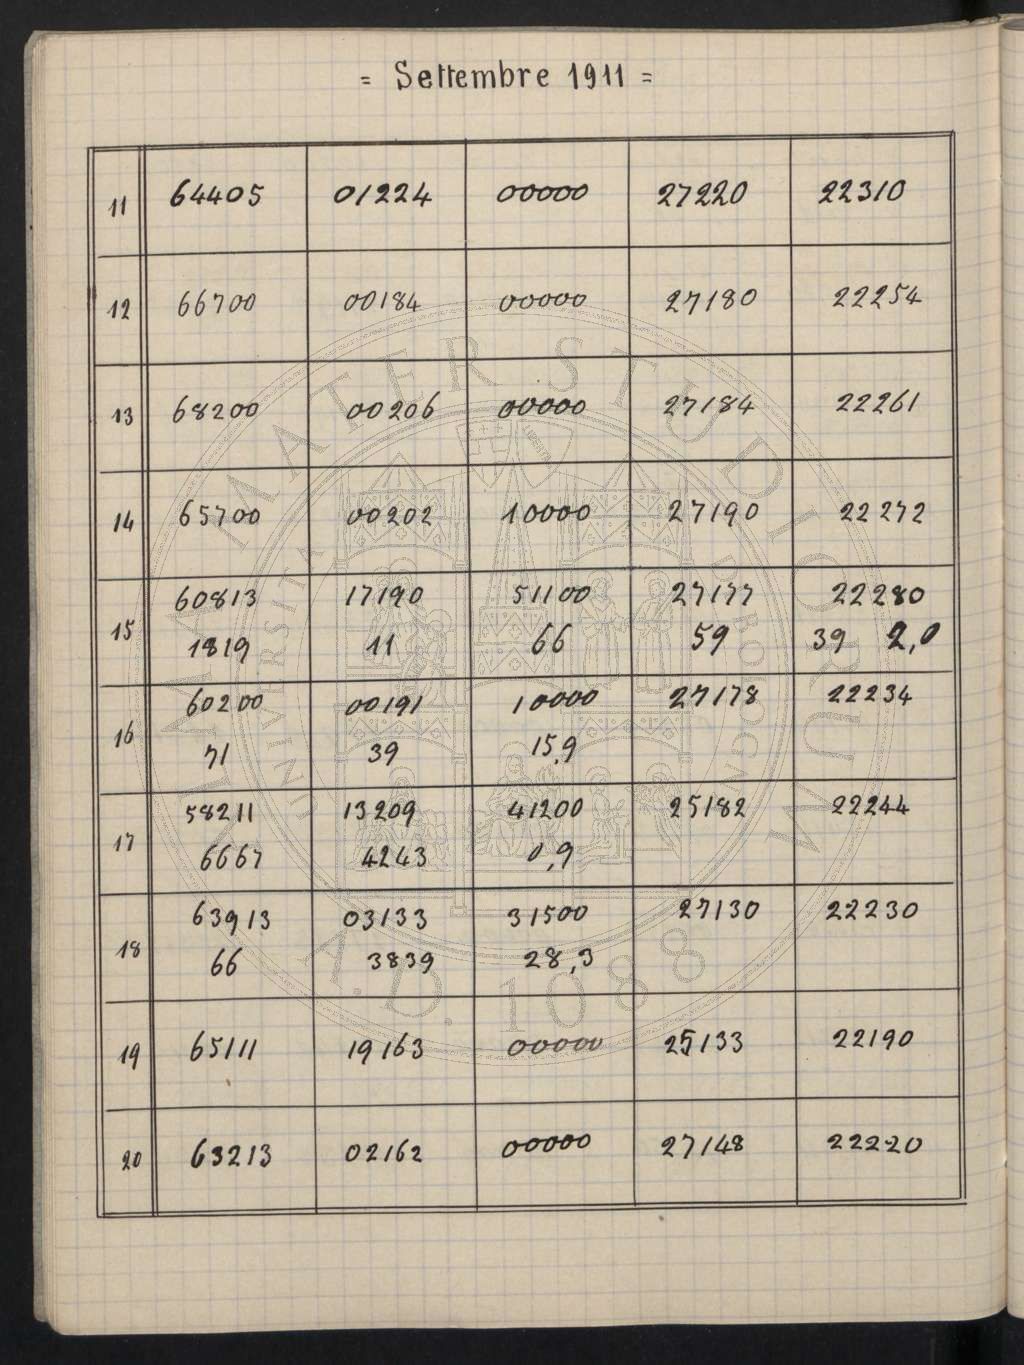 = Settembre 1911 =
11 64405 01224 00000 27220 22310
12 66700 00184 00000 27180 22254
13 68200 00206 00000 27184 22261
14 65700 00202 10000 27190 22272
15 60813 17190 51100 27177 22280
1819 11 66 59 39 2,0
16 60200 00191 10000 27178 22234
71 39 15,9
17 58211 13209 41200 25182 22244
6667 4243 0,9
18 63913 03133 31500 27130 22230
66 3839 28,3
19 65111 19163 00000 25133 22190
20 63213 02162 00000 27148 22220
ALMA MATER STUDIORUM
UNIVERSITÀ DI BOLOGNA
A.D. 1088